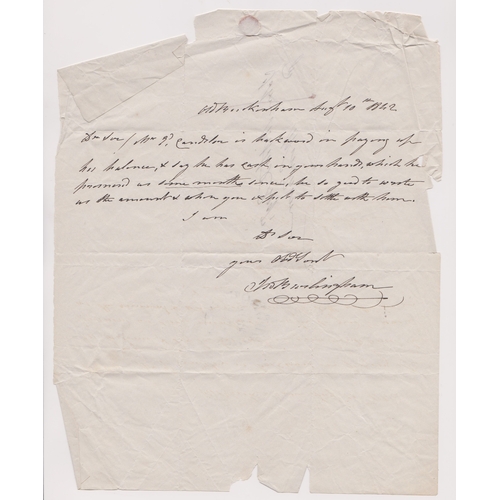 Old Buckenham Augt 10th 1842
Dr Sir / Mr Js. is backward in paying up
his balance, & say he has cash in your hands, which he
promised us some months since, be so good to write
us the amount & when you expect to settle with him.
I am
Dr Sir
your Obdt Servt
Burlingham